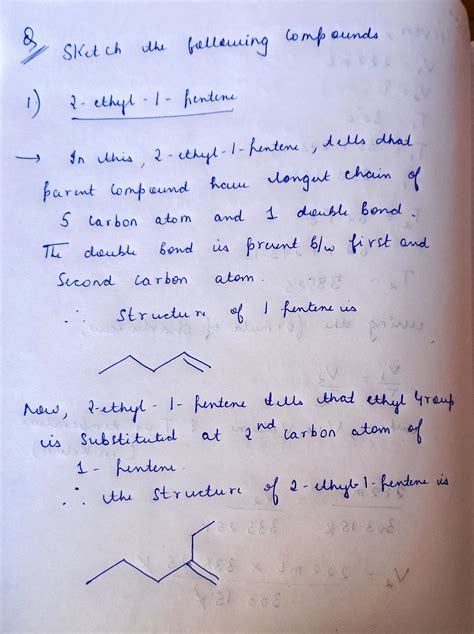 Q Sketch the following compounds
1) 2-ethyl-1-pentene
→ In this, 2-ethyl-1-pentene, tells that
parent compound have longest chain of
5 carbon atom and 1 double bond.
The double bond is present b/w first and
second carbon atom.
∴ Structure of 1 pentene is
Now, 2-ethyl-1-pentene tells that ethyl Group
is substituted at 2nd carbon atom of
1-pentene.
∴ the structure of 2-ethyl-1-pentene is